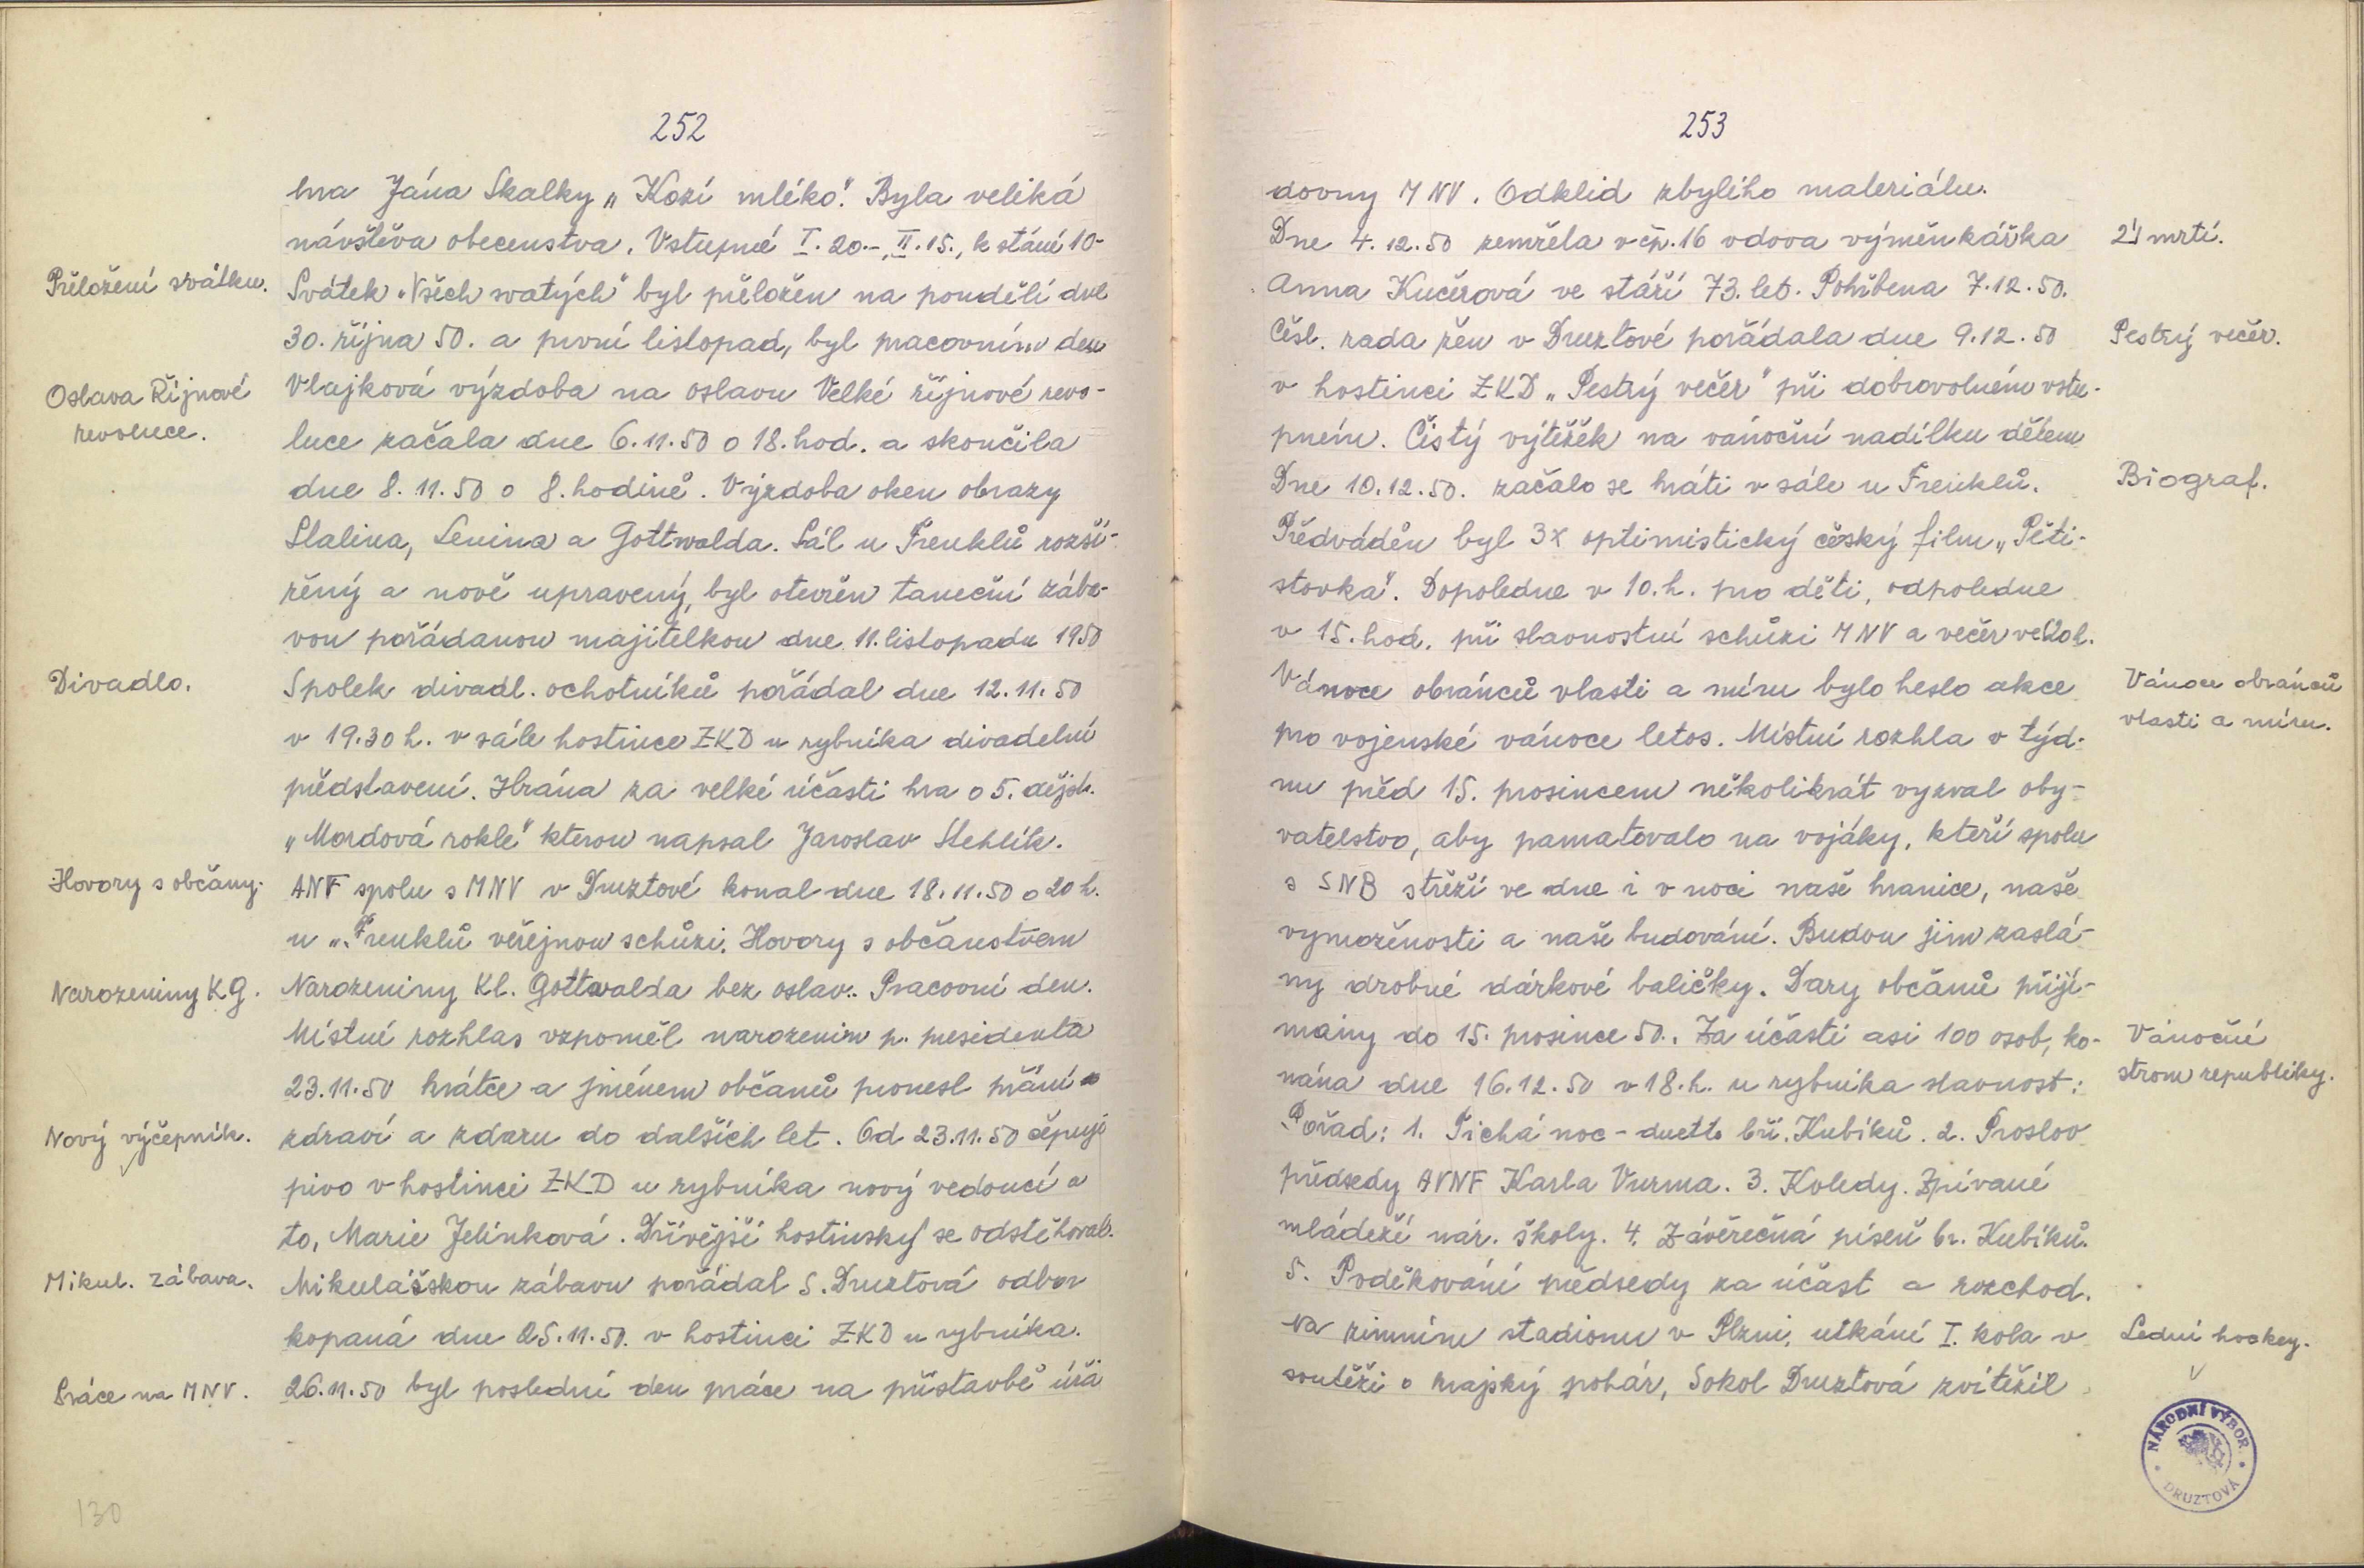 252
hra Jána Skalky „Kozí mléko". Byla veliká
návštěva obecenstva. Vstupné I. 20.-, II. 15., k stání 10-
Přeložení svátku.
Svátek „Všech svatých" byl přeložen na pondělí dne
30. října 50. a první listopad, byl pracovním den
Oslava Říjnové
revoluce.
Vlajková výzdoba na oslavu Velké říjnové revo-
luce začala dne 6.11.50 o 18. hod. a skončila
dne 8.11.50 o 8. hodině. Výzdoba oken obrazy
Stalina, Lenina a Gottwalda. Sál u Frenklů rozší-
řený a nově upravený, byl otevřen taneční zába-
vou pořádanou majitelkou dne 11. listopadu 1950
Divadlo.
Spolek divadl. ochotníků pořádal dne 12.11.50
v 19.30 h. v sále hostince ZKD u rybníka divadelní
představení. Hrána za velké účasti hra o 5. dějst.
„Mordová rokle" kterou napsal Jaroslav Stehlík.
Hovory s občany.
ANF spolu s MNV v Druztové konal dne 18.11.50 o 20 h.
u „Frenklů veřejnou schůzi. Hovory s občanstvem
Narozeniny K.G.
Narozeniny Kl. Gottwalda bez oslav. Pracovní den.
Místní rozhlas vzpoměl narozenin p. presidenta
23.11.50 krátce a jménem občanů pronesl přání
Nový výčepník.
zdraví a zdaru do dalších let. Od 23.11.50 čepuje
pivo v hostinci ZKD u rybníka nový vedoucí a
to, Marie Jelínková. Dřívější hostinský se odstěhoval.
Mikul. zábava.
Mikulášskou zábavu pořádal S. Druztová odbor
kopaná dne 25.11.50. v hostinci ZKD u rybníka.
Práce na MNV.
26.11.50 byl poslední den práce na přístavbě úřa
130
253
dovny MNV. Odklid zbylího materiálu.
Dne 4.12.50 zemřela v čp. 16 vdova výměnkářka
Anna Kučerová ve stáří 73. let. Pohřbena 7.12.50.
Čsl. rada žen v Druztové pořádala dne 9.12.50
Pestrý večer.
v hostinci ZKD „Pestrý večer" při dobrovolném vstu-
pném. Čistý výtěžek na vánoční nadílku dětem
Biograf.
Dne 10.12.50. začalo se hráti v sále u Frenklů.
Předváděn byl 3x optimistický český film „Pěti-
stovka". Dopoledne v 10. h. pro děti, odpoledne
v 15. hod. při slavnostní schůzi MNV a večer ve 20 h.
Vánoce obránců
vlasti a míru.
Vánoce obránců vlasti a míru bylo heslo akce
pro vojenské vánoce letos. Místní rozhla v týd-
nu před 15. prosincem několikrát vyzval oby-
vatelstvo, aby pamatovalo na vojáky, kteří spolu
s SNB střeží ve dne i v noci naše hranice, naše
vymoženosti a naše budování. Budou jim zaslá-
ny drobné dárkové balíčky. Dary občanů přijí-
mány do 15. prosince 50. Za účasti asi 100 osob, ko-
Vánoční
strom republiky.
nána dne 16.12.50 v 18. h. u rybníka slavnost:
Pořad: 1. Tichá noc - duetto bří. Kubíků. 2. Proslov
předsedy AVNF Karla Vurma. 3. Koledy. Zpívané
mládeží nár. školy. 4. Závěrečná píseň br. Kubíků.
5. Poděkování předsedy za účast a rozchod.
Lední hockey.
Na zimním stadionu v Plzni, utkání I. kola v
soutěži o krajský pohár, Sokol Druztová zvítězil
NÁRODNÍ VÝBOR
DRUZTOVÁ